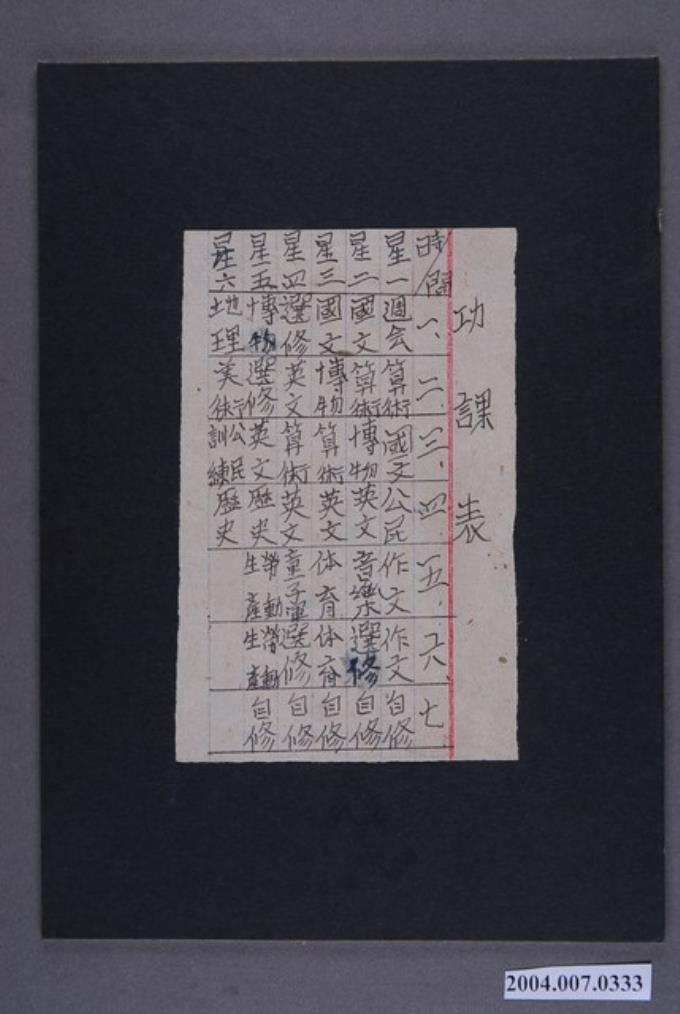 功課表
時間 一、 二、 三、 四、 五、 六、 七
星一 週会 算術 國文 公民 作文 作文 自修
星二 國文 算術 博物 英文 音樂 選修 自修
星三 國文 博物 算術 英文 体育 体育 自修
星四 選修 英文 算術 英文 童子軍 選修 自修
星五 博物 選修 英文 歷史 勞動生產 勞動生產 自修
星六 地理 美術 公民訓練 歷史
2004.007.0333